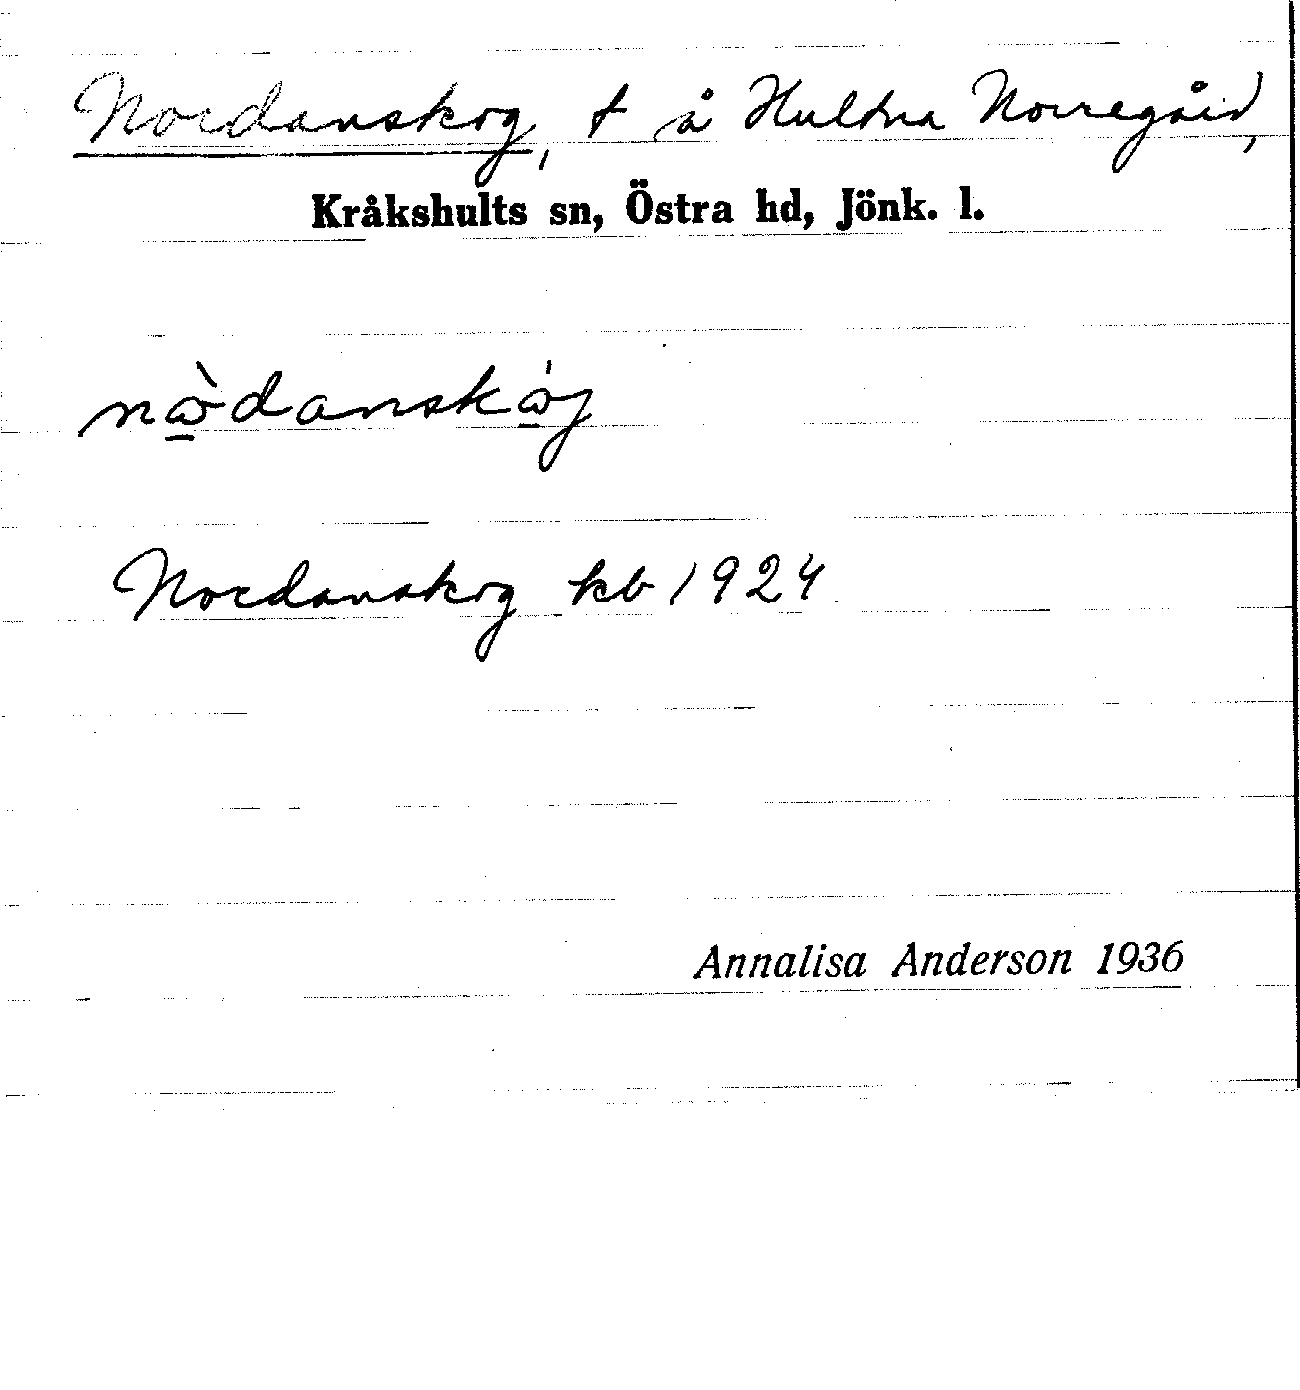 Nordanskog, t å Hultna Norregård,
Kråkshults sn, Östra hd, Jönk. l.
nὼdanskω̇j
Nordanskog kb 1924
Annalisa Anderson 1936